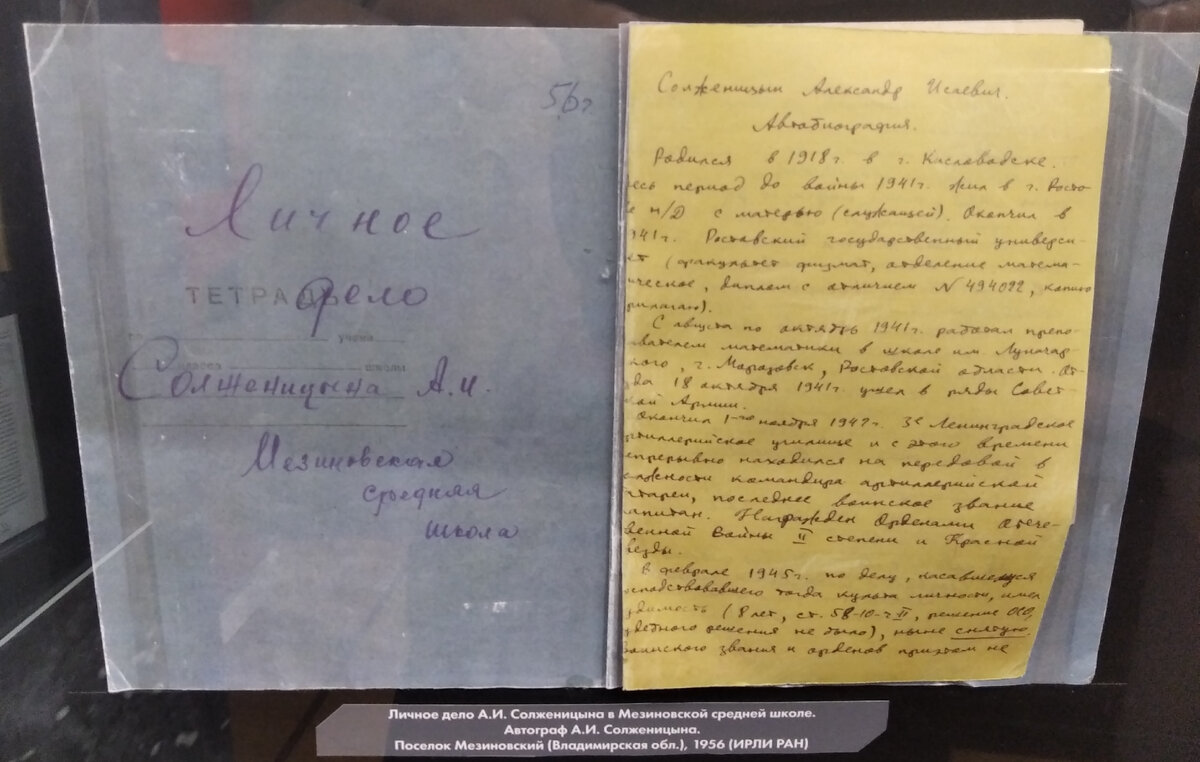 56 г
Личное
ТЕТРАД
дело
учени
класса школы
Солженицына А.И.
Мезиновская
средняя
школа
Солженицын Александр Исаевич.
Автобиография.
Родился в 1918 г. в г. Кисловодске.
есь период до войны 1941 г. жил в г. Росто-
е н/Д с матерью (служащей). Окончил в
941 г. Ростовский государственный универси-
ет (факультет физмат, отделение матема-
ическое, диплом с отличием N 494022, копию
рилагаю).
С августа по октябрь 1941 г. работал препо-
вателем математики в школе им. Луначар
кого, г. Морозовск, Ростовской области. От-
да 18 октября 1941 г. ушел в ряды Совет-
кой Армии.
Окончил 1-го ноября 1942 г. 3е Ленинградское
ртиллерийское училище и с этого времени
епрерывно находился на передовой в
олжности командира артиллерийской
атареи, последнее воинское звание
апитан. Награжден Орденами Отече-
венной Войны II степени и Красной
везды.
В феврале 1945 г. по делу, касавшемуся
осподствовавшего тогда культа личности, имел
удимость (8 лет, ст. 58-10-ч II, решение ОСО,
удебного решения не было), ныне снятую.
оинского звания и орденов притом не
Личное дело А.И. Солженицына в Мезиновской средней школе.
Автограф А.И. Солженицына.
Поселок Мезиновский (Владимирская обл.), 1956 (ИРЛИ РАН)